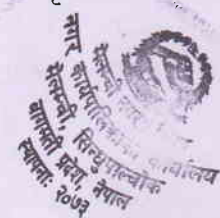 नगर कार्यपालिकाको कार्यालय
मेलम्ची, सिन्धुपाल्चोक
बागमती प्रदेश, नेपाल
स्थापना: २०७३